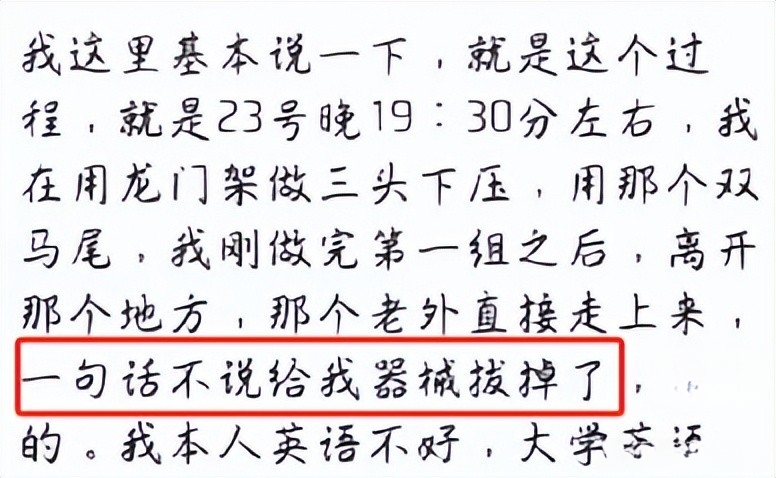 我这里基本说一下，就是这个过
程，就是23号晚19：30分左右，我
在用龙门架做三头下压，用那个双
马尾，我刚做完第一组之后，离开
那个地方，那个老外直接走上来，
一句话不说给我器械拔掉了，
的。我本人英语不好，大学英语